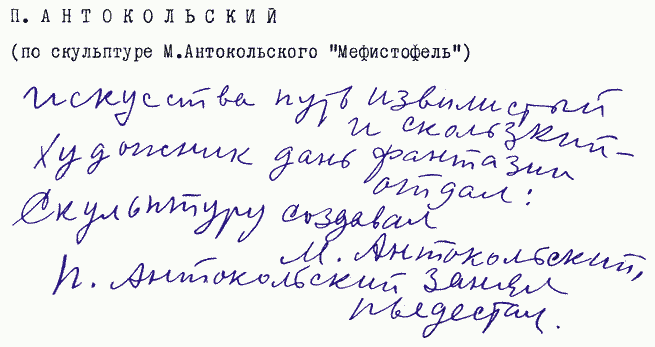 П. А Н Т О К О Л Ь С К И Й
(по скульптуре М.Антокольского "Мефистофель")
Искусства путь извилистый
и скользкий –
Художник дань фантазии
отдал:
Скульптуру создавал
М. Антокольский,
П. Антокольский занял
пьедестал.